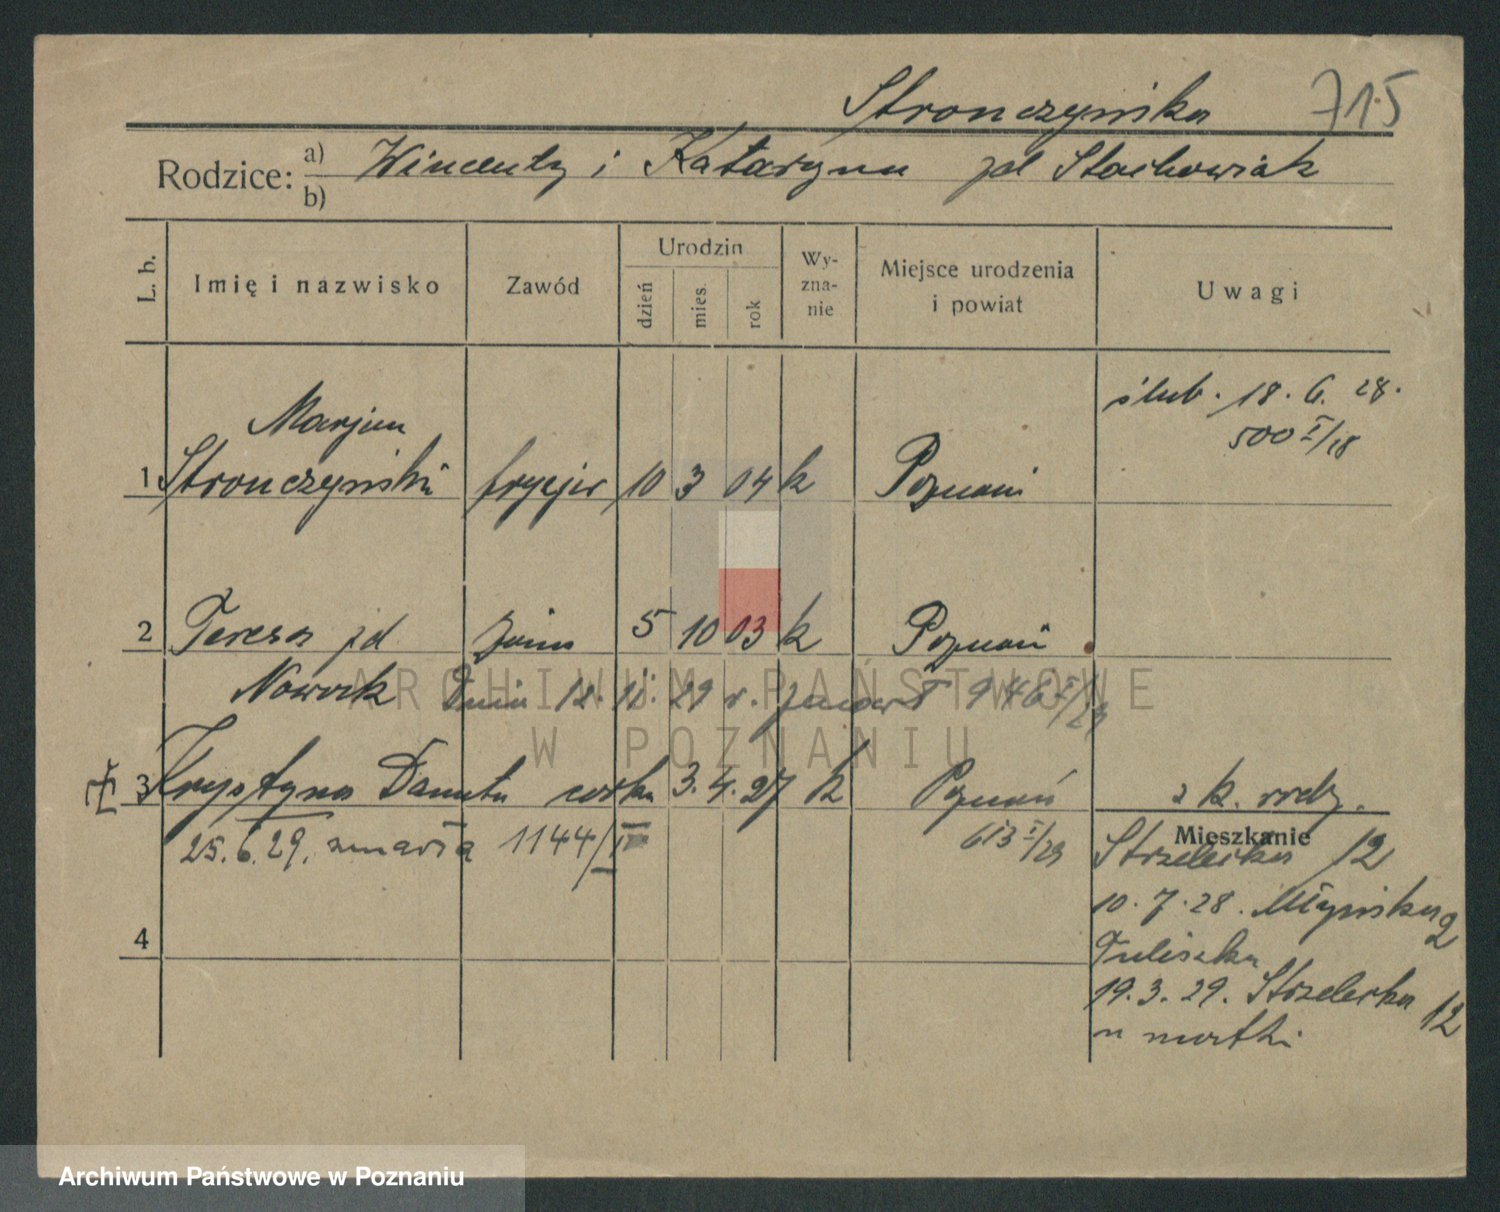 Stronczyńska 715
Rodzice: a) Wincenty i Kataryna zd Stachowiak
b)
L. b. Imię i nazwisko Zawód Urodzin dzień mies. rok Wy-zna-nie Miejsce urodzenia i powiat Uwagi
ślub. 18. 6. 28.
500 I/18
Marjan
1 Stronczyński fryzjer 10 3 04 k Poznań
2 Teresa zd żona 5 10 03 k Poznań
Nowak Dnia 12. 11. 29 r. 946 I/29
3 Krystyna Danuta córka 3. 4. 27 k Poznań z k.
25. 6. 29. zmarła 1144/III 613 I/29
Mieszkanie
Strzelecka 12
10. 7. 28. Młyńska 2
Tuliszka
19. 3. 29. Strzelecka 12
u matki
4
ARCHIWUM PAŃSTWOWE
W POZNANIU
Archiwum Państwowe w Poznaniu